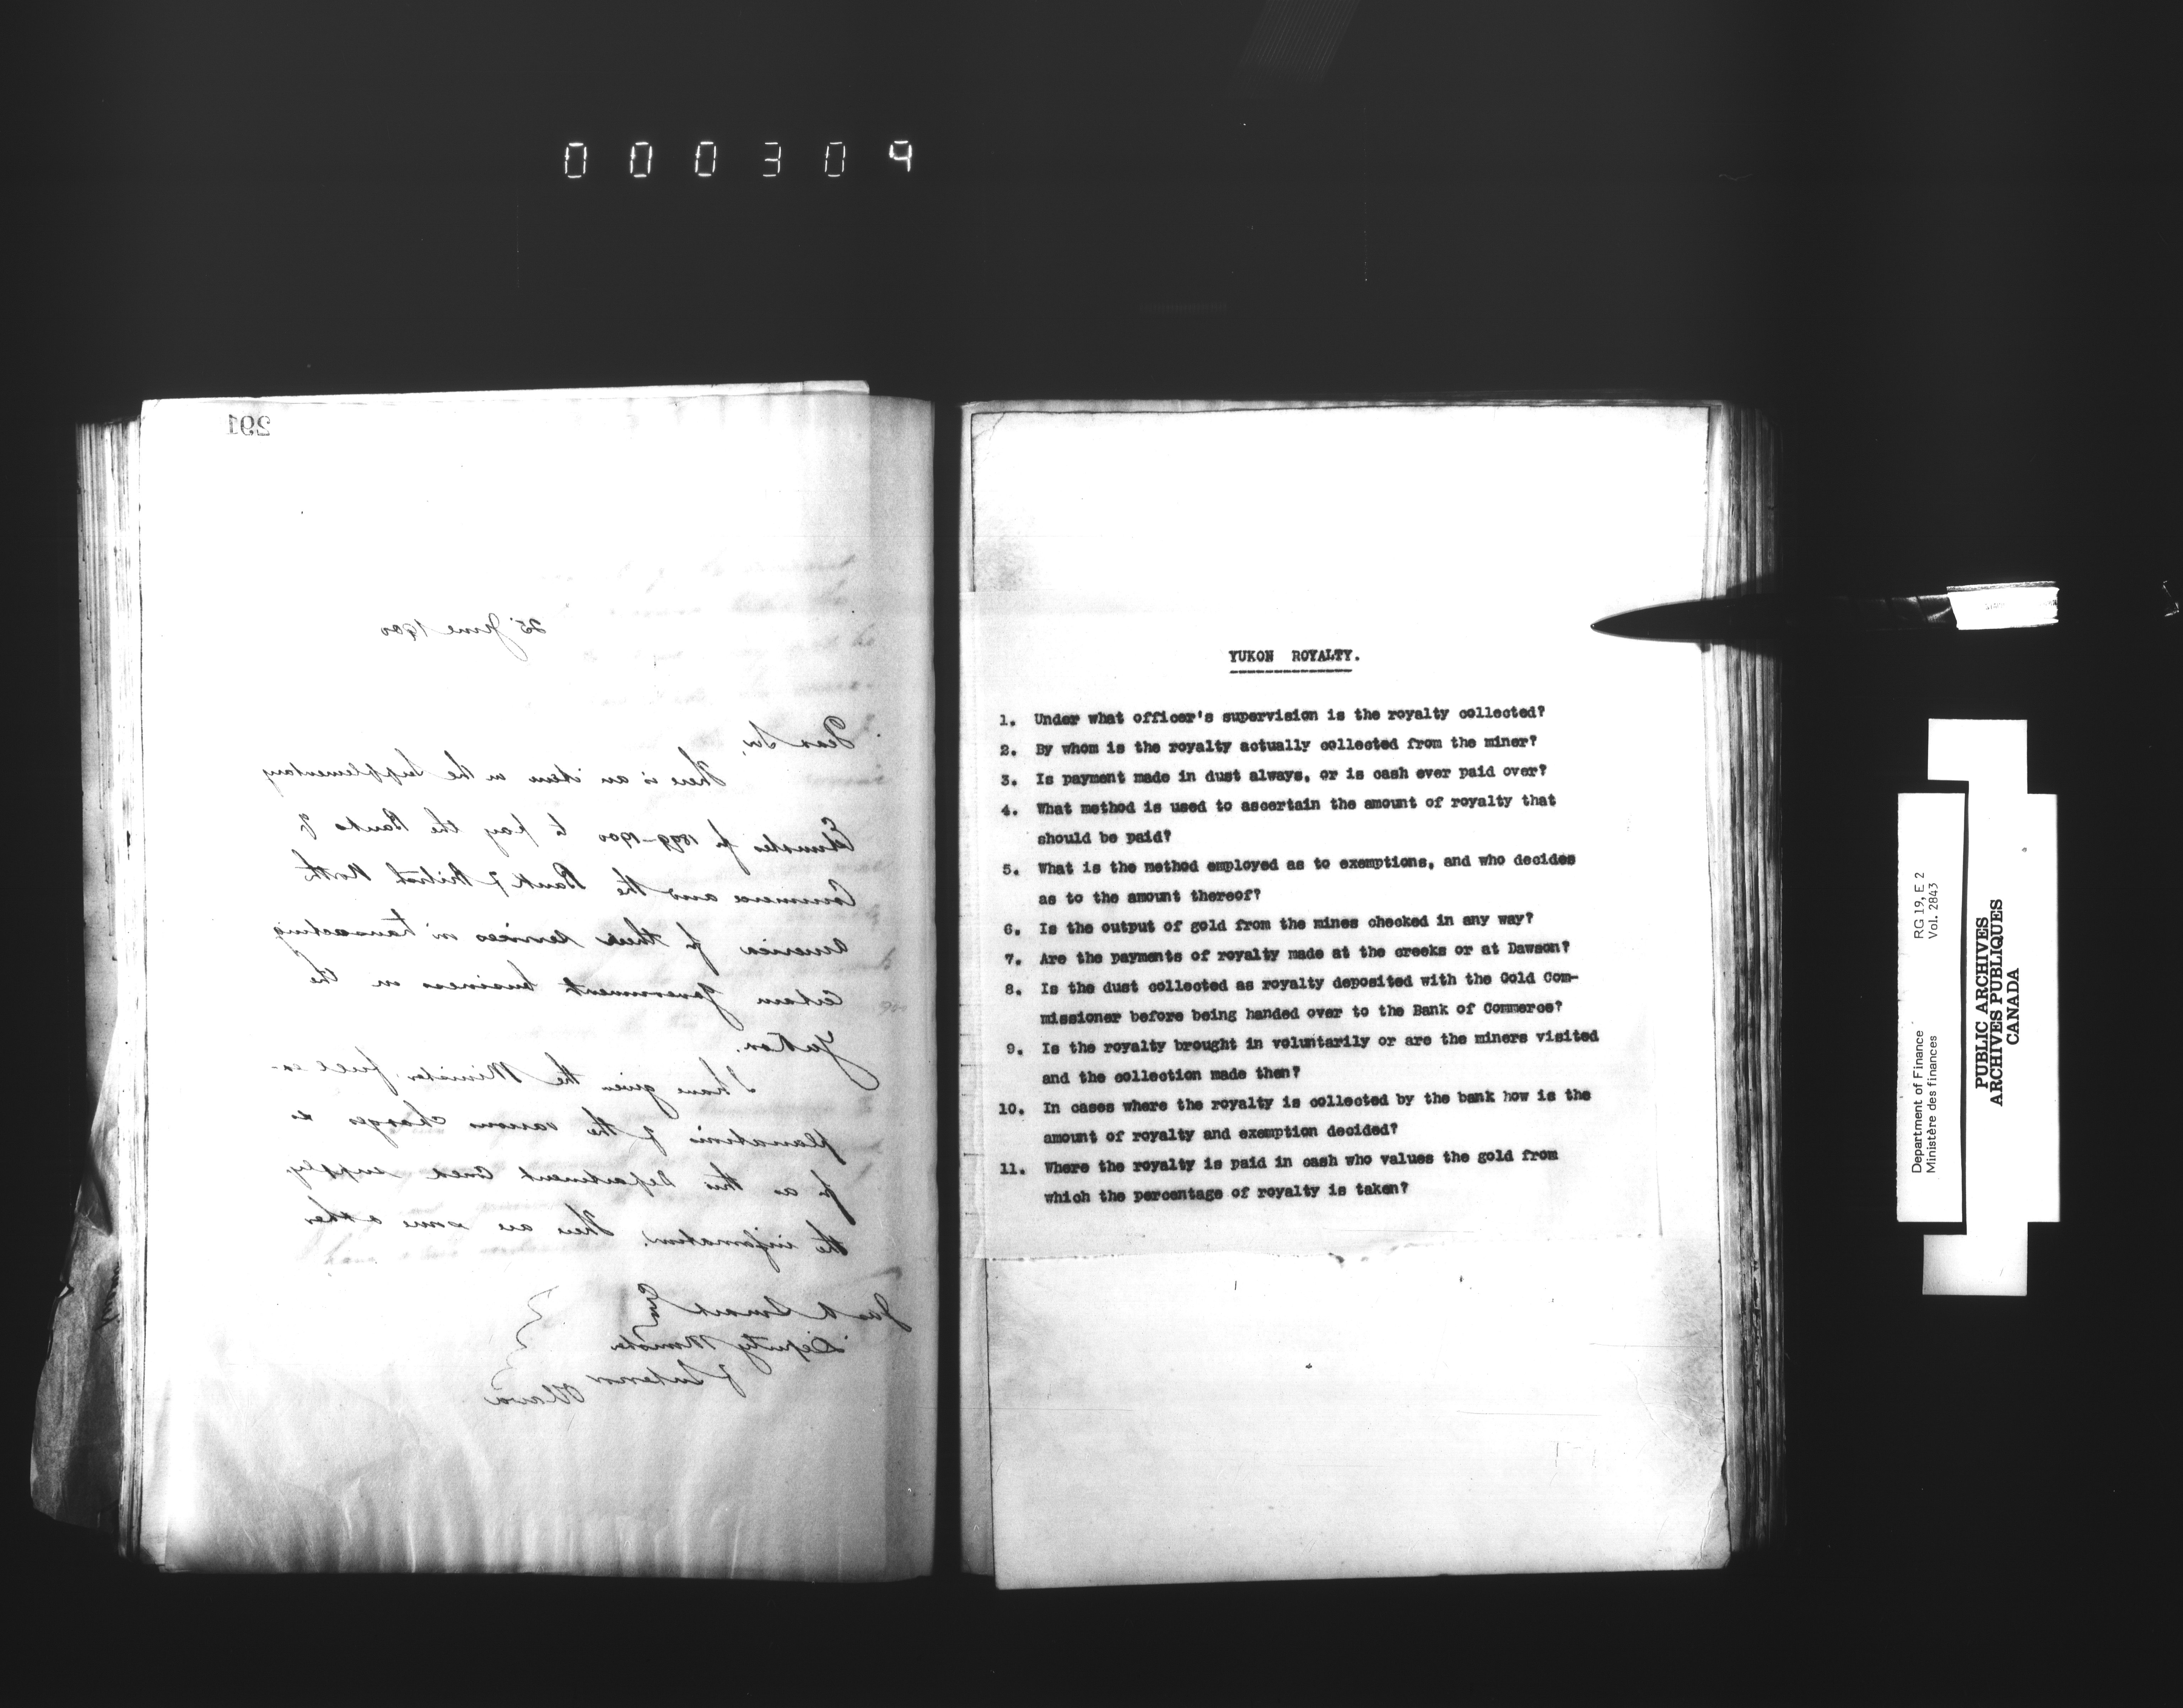 000309
291
25 June 1900
Dear Sir,
There is an item in the Supplementary
Estimates for 1899-1900 to pay the Banks of
Commerce and the Bank of British North
America for their services in transacting
certain Government business in the
Yukon.
I have given the Minister full ex-
planations of the various charges so
far as this Department could supply
the information. There are some other
Jas A Smart Esq
Deputy Minister
of Interior
Ottawa
YUKON ROYALTY.
1. Under what officer's supervision is the royalty collected?
2. By whom is the royalty actually collected from the miner?
3. Is payment made in dust always, or is cash ever paid over?
4. What method is used to ascertain the amount of royalty that
should be paid?
5. What is the method employed as to exemptions, and who decides
as to the amount thereof?
6. Is the output of gold from the mines checked in any way?
7. Are the payments of royalty made at the creeks or at Dawson?
8. Is the dust collected as royalty deposited with the Gold Com-
missioner before being handed over to the Bank of Commerce?
9. Is the royalty brought in voluntarily or are the miners visited
and the collection made then?
10. In cases where the royalty is collected by the bank how is the
amount of royalty and exemption decided?
11. Where the royalty is paid in cash who values the gold from
which the percentage of royalty is taken?
Department of Finance RG 19, E 2
Ministère des finances Vol. 2843
PUBLIC ARCHIVES
ARCHIVES PUBLIQUES
CANADA